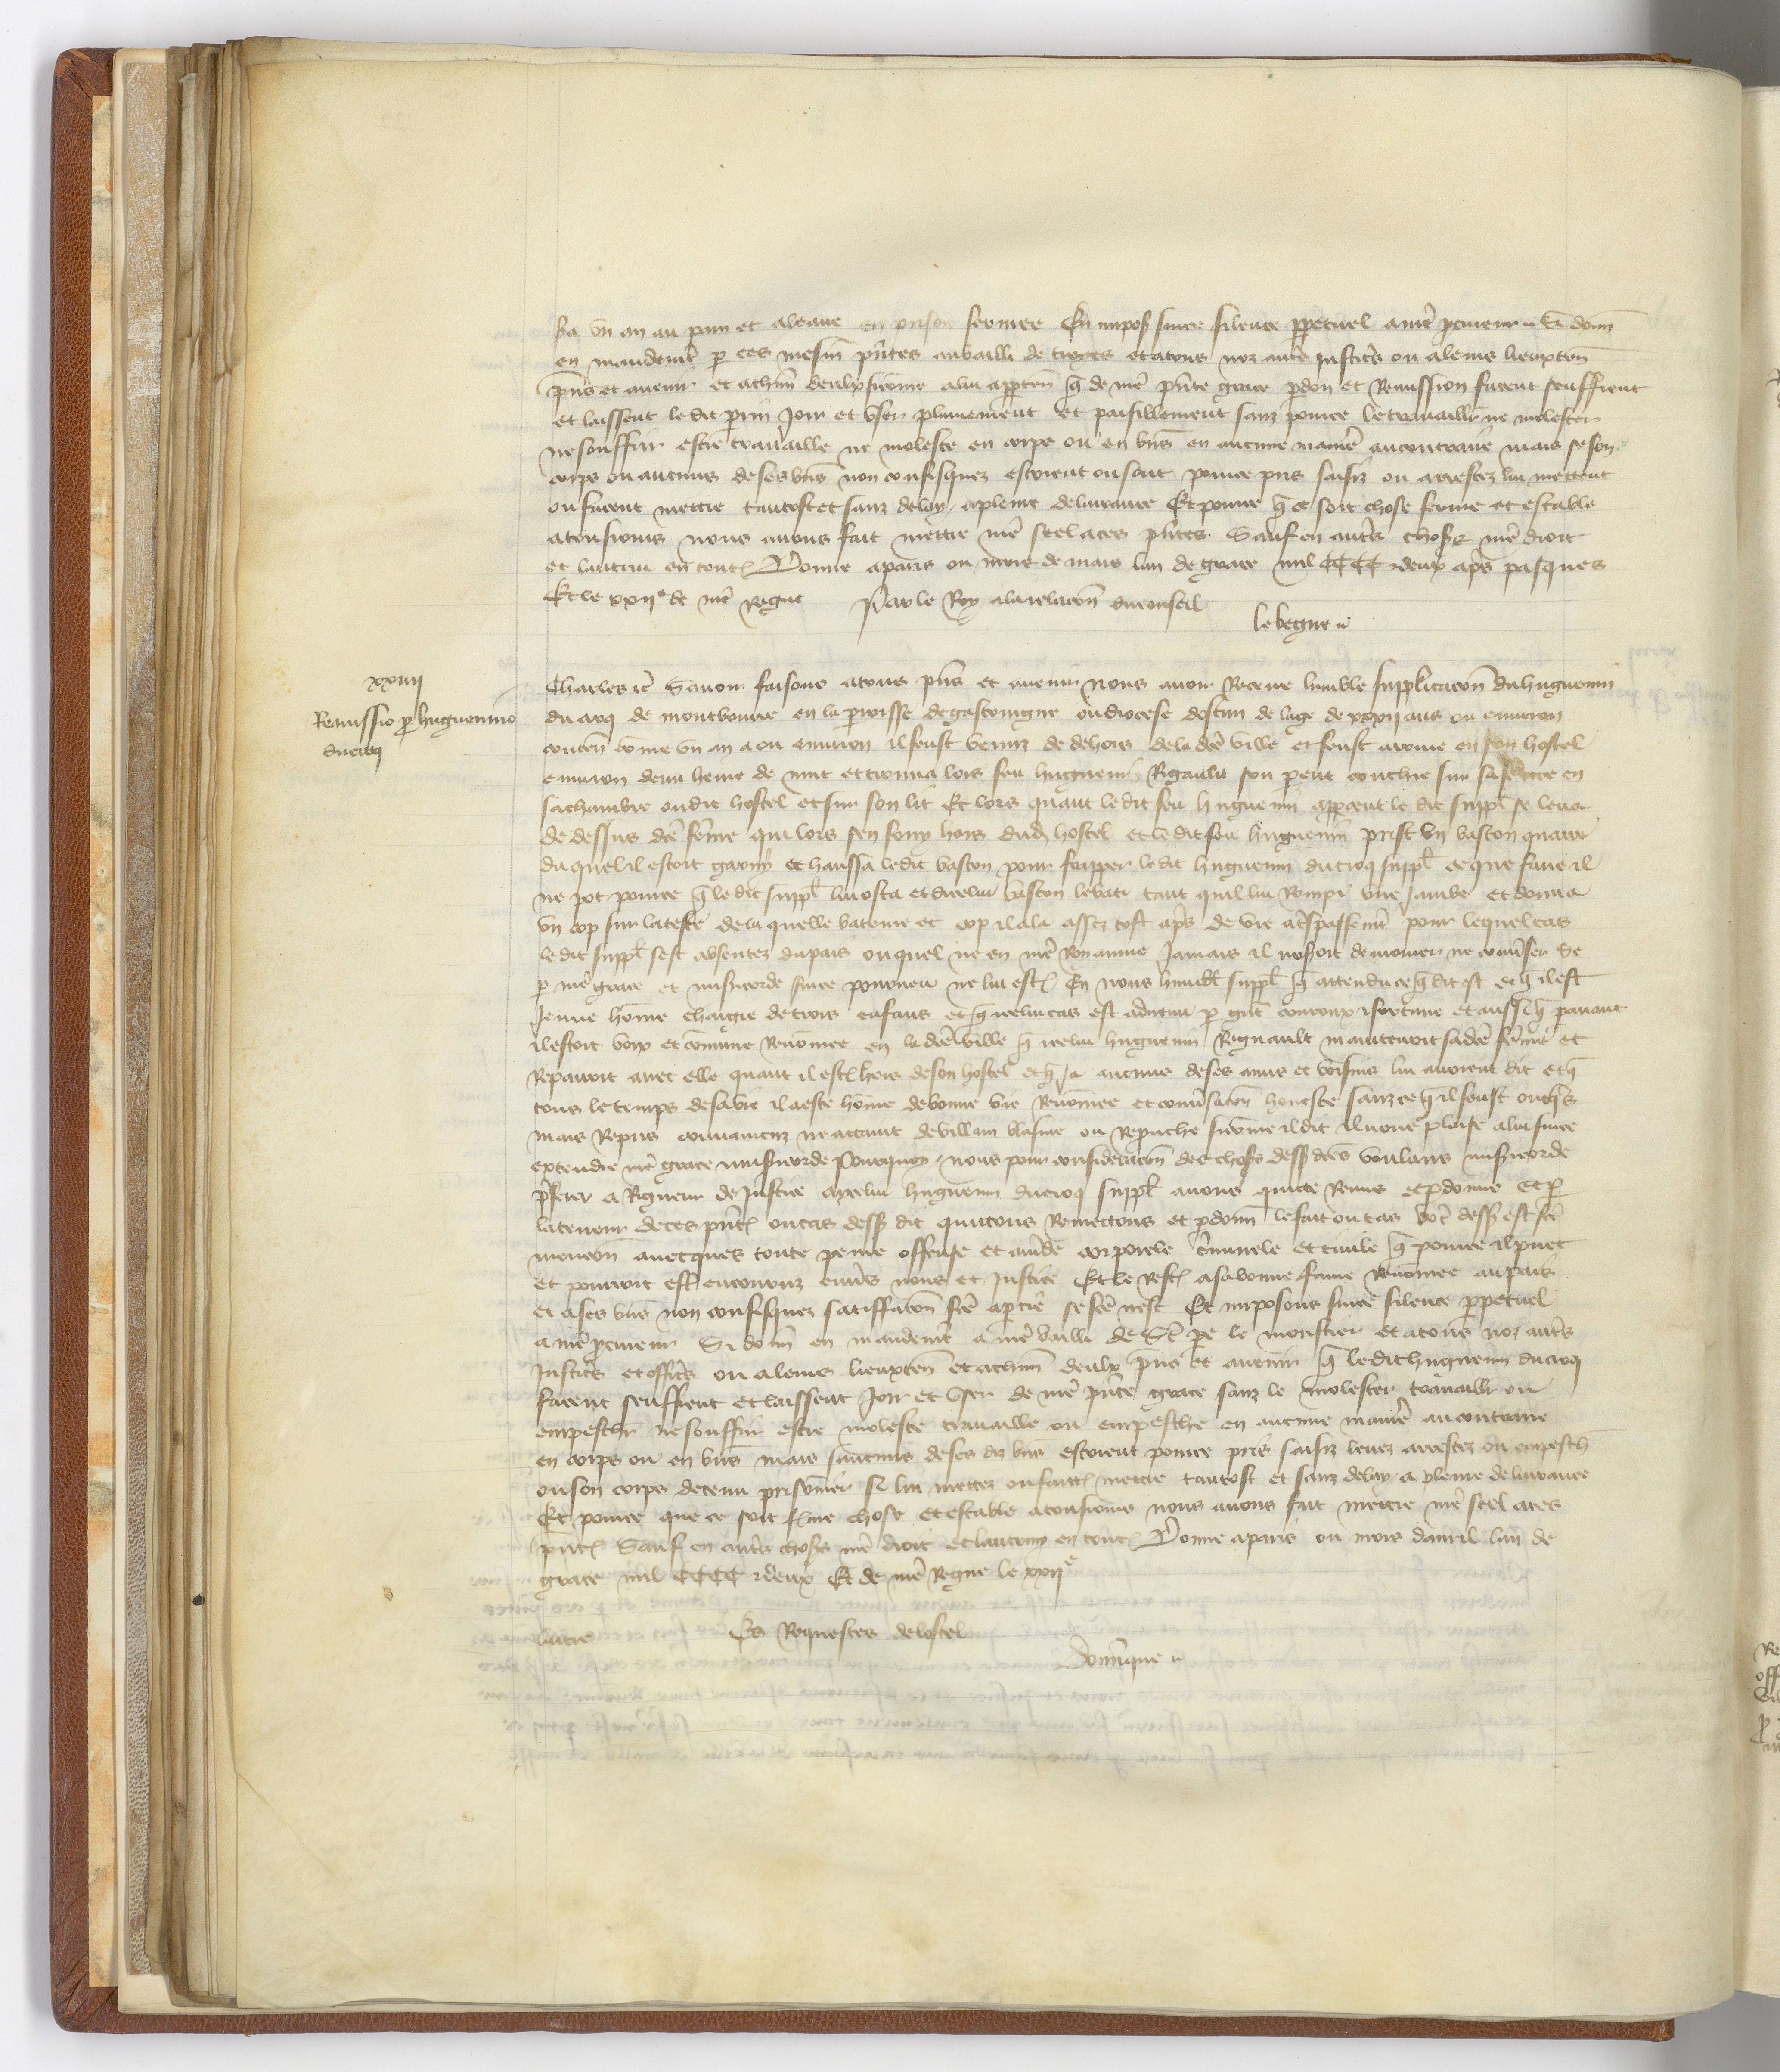 sa un an au pain et a leaue en prison fermee En impost sur ce silence ppetuel a nre pcureur Si donn
en mandemt p ces mesm pntes au bailli de troyes et a tous noz autres justic's ou a leurs lieuxten
pns et avenir et a chun deulx si comme a lui appten q de nre pnte grace pdon et Remission facent seuffrent
et laissent le dit prin joir et user plainement et paisiblement sanz pour ce le travaillr ne molester
ne souffrir estre travaille ne moleste en corps ou en biens en aucune maniere au contraire mais se son
corps ou aucuns de ses biens non confisquez estoient ou sont pour ce pris saisiz ou arrestez lui mettent
ou facent mettre tantost et sanz delay a pleine delivrance Et pour ce q ce soit chose ferme et estable
a tousjours nous avons fait mettre nre seel a ces pntes Sauf en autres choses nre droit
et lautrui en toutes Donne a paris ou mois de mars lan de grace mil CCCC et deux aps pasques
Et le xxiie de nre Regne Par le Roy a la relacon du conseil
le begue
xxiiii
Remissio p huguenino
du croq
Charles etc Savoir faisons a tous pns et avenir nous avoir Receue lumble supplicacon du huguenin
du croq de montbonne en la proisse de gascoingne ou diocese dostun de lage de xxxii ans ou environ
conten come un an a ou environ il feust venuz de dehors de la dce ville et feust arrive en son hostel
environ demi heure de nuit et trouva lors feu huguenin Rigault son parent couchie sur sa femme en
sa chambre ou dit hostel et sur son lit Et lors quant le dit feu huguenin appceut le dit suppl se leva
de dessus dce feme qui lors sen fouy hors dud hostel et le dit feu huguenin prist un baston quarre
du quel il estoit garny et haussa le dit baston pour frapper le dit huguenin du croq suppl ce que faire il
ne pot pour ce q le dit suppl lui osta et dicelui baston le bati tant quil lui Rompi une jambe et donna
un cop sur la teste de la quelle bateure et cop il ala assez tost aps de vie a trespassemt pour lequel cas
le dit suppl sest absentez du pais ou quel ne en nre Royaume jamais il noseroit demourer ne converser Se
p nre grace et misericorde sur ce pourveu ne lui est En nous humbl suppl q attendu ce q dit est et q il est
jeune home chargie de trois enfans et q icelui cas est advenu p gnt courroux et fortune et aussi q paravant
il estoit voix et comune Renomee en la dce ville q icelui huguenin Rigault maintenoit sa dce feme et
Reparoit avec elle quant il est hors de son hostel et q ja aucuns de ses amis et voisins lui avoient dit et q
tous le temps de sa vie il a este home de bonne vie Renomee et conversacon honeste sanz ce q il feust oncqs
mais Repris convaincuz ne attaint de villain blasme ou Reproche si come il dit il nous plaise a lui sur ce
extendre nre grace misericorde Pourquoy nous pour consideracon des choses dess dces voulans misericorde
pferer a Rigueur de justice a icelui huguenin du croq suppl avons quicte Remis et pdonne Et p
la teneur de ces pntes ou cas dess dit quictons Remettons et pdonn le fait ou cas dont dess est fce
mencon avecques toute peine offense et amde corporele criminele et civile q pour ce il puet
et pourroit est encouruz envers nous et justice Et le Rest a sa bonne fame Renomee au pais
et a ses biens non confisquez satiffacon fce a ptie se fce nest Et imposons sur ce silence ppetuel
a nre pcureur Si donn en mandemt a nre bailli de St pe le moustier et a tous noz autres
justic's et offic's ou a leurs lieuxten et a chun deulx pns et avenir q le dit huguenin du croq
facent seuffrent et laissent joir et user de nre pnte grace sanz le molester travaillr ou
empeschr ne souffrir estre moleste travaille ou empesche en aucune maniere au contraire
en corps ou en biens mais saucuns de ses diz biens estoient pour ce pris saisiz levez arrestez ou empesch
ou son corps detenu prisonnier si lui mettez ou faites mettre tantost et sanz delay a pleine delivrance
Et pour ce que ce soit ferme chose et estable a tousjours nous avons fait mettre nre seel a ces
pntes Sauf en autres choses nre droit et lautruy en toutes Donne a paris ou mois davril lan de
grace mil CCCC et deux Et de nre Regne le xxiie
Es Requestes de lostel
Dominque